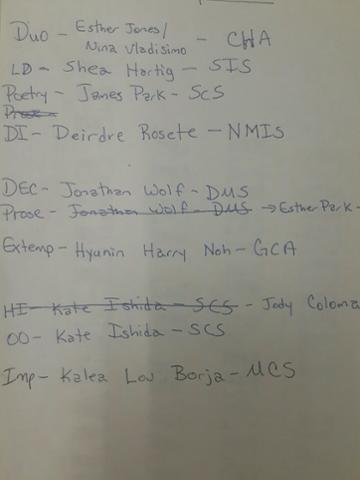 Duo - Esther Jones/
Nina Vladisimo - CHA
LD - Shea Hartig - SIS
Poetry - James Park - SCS
Prose
DI - Deirdre Rosete - NMIS
DEC - Jonathan Wolf - DMS
Prose - Jonathan Wolf - DMS → Esther Park -
Extemp - Hyunin Harry Noh - GCA
HI - Kate Ishida - SCS - Jody Coloma
OO - Kate Ishida - SCS
Imp - Kalea Lou Borja - MCS